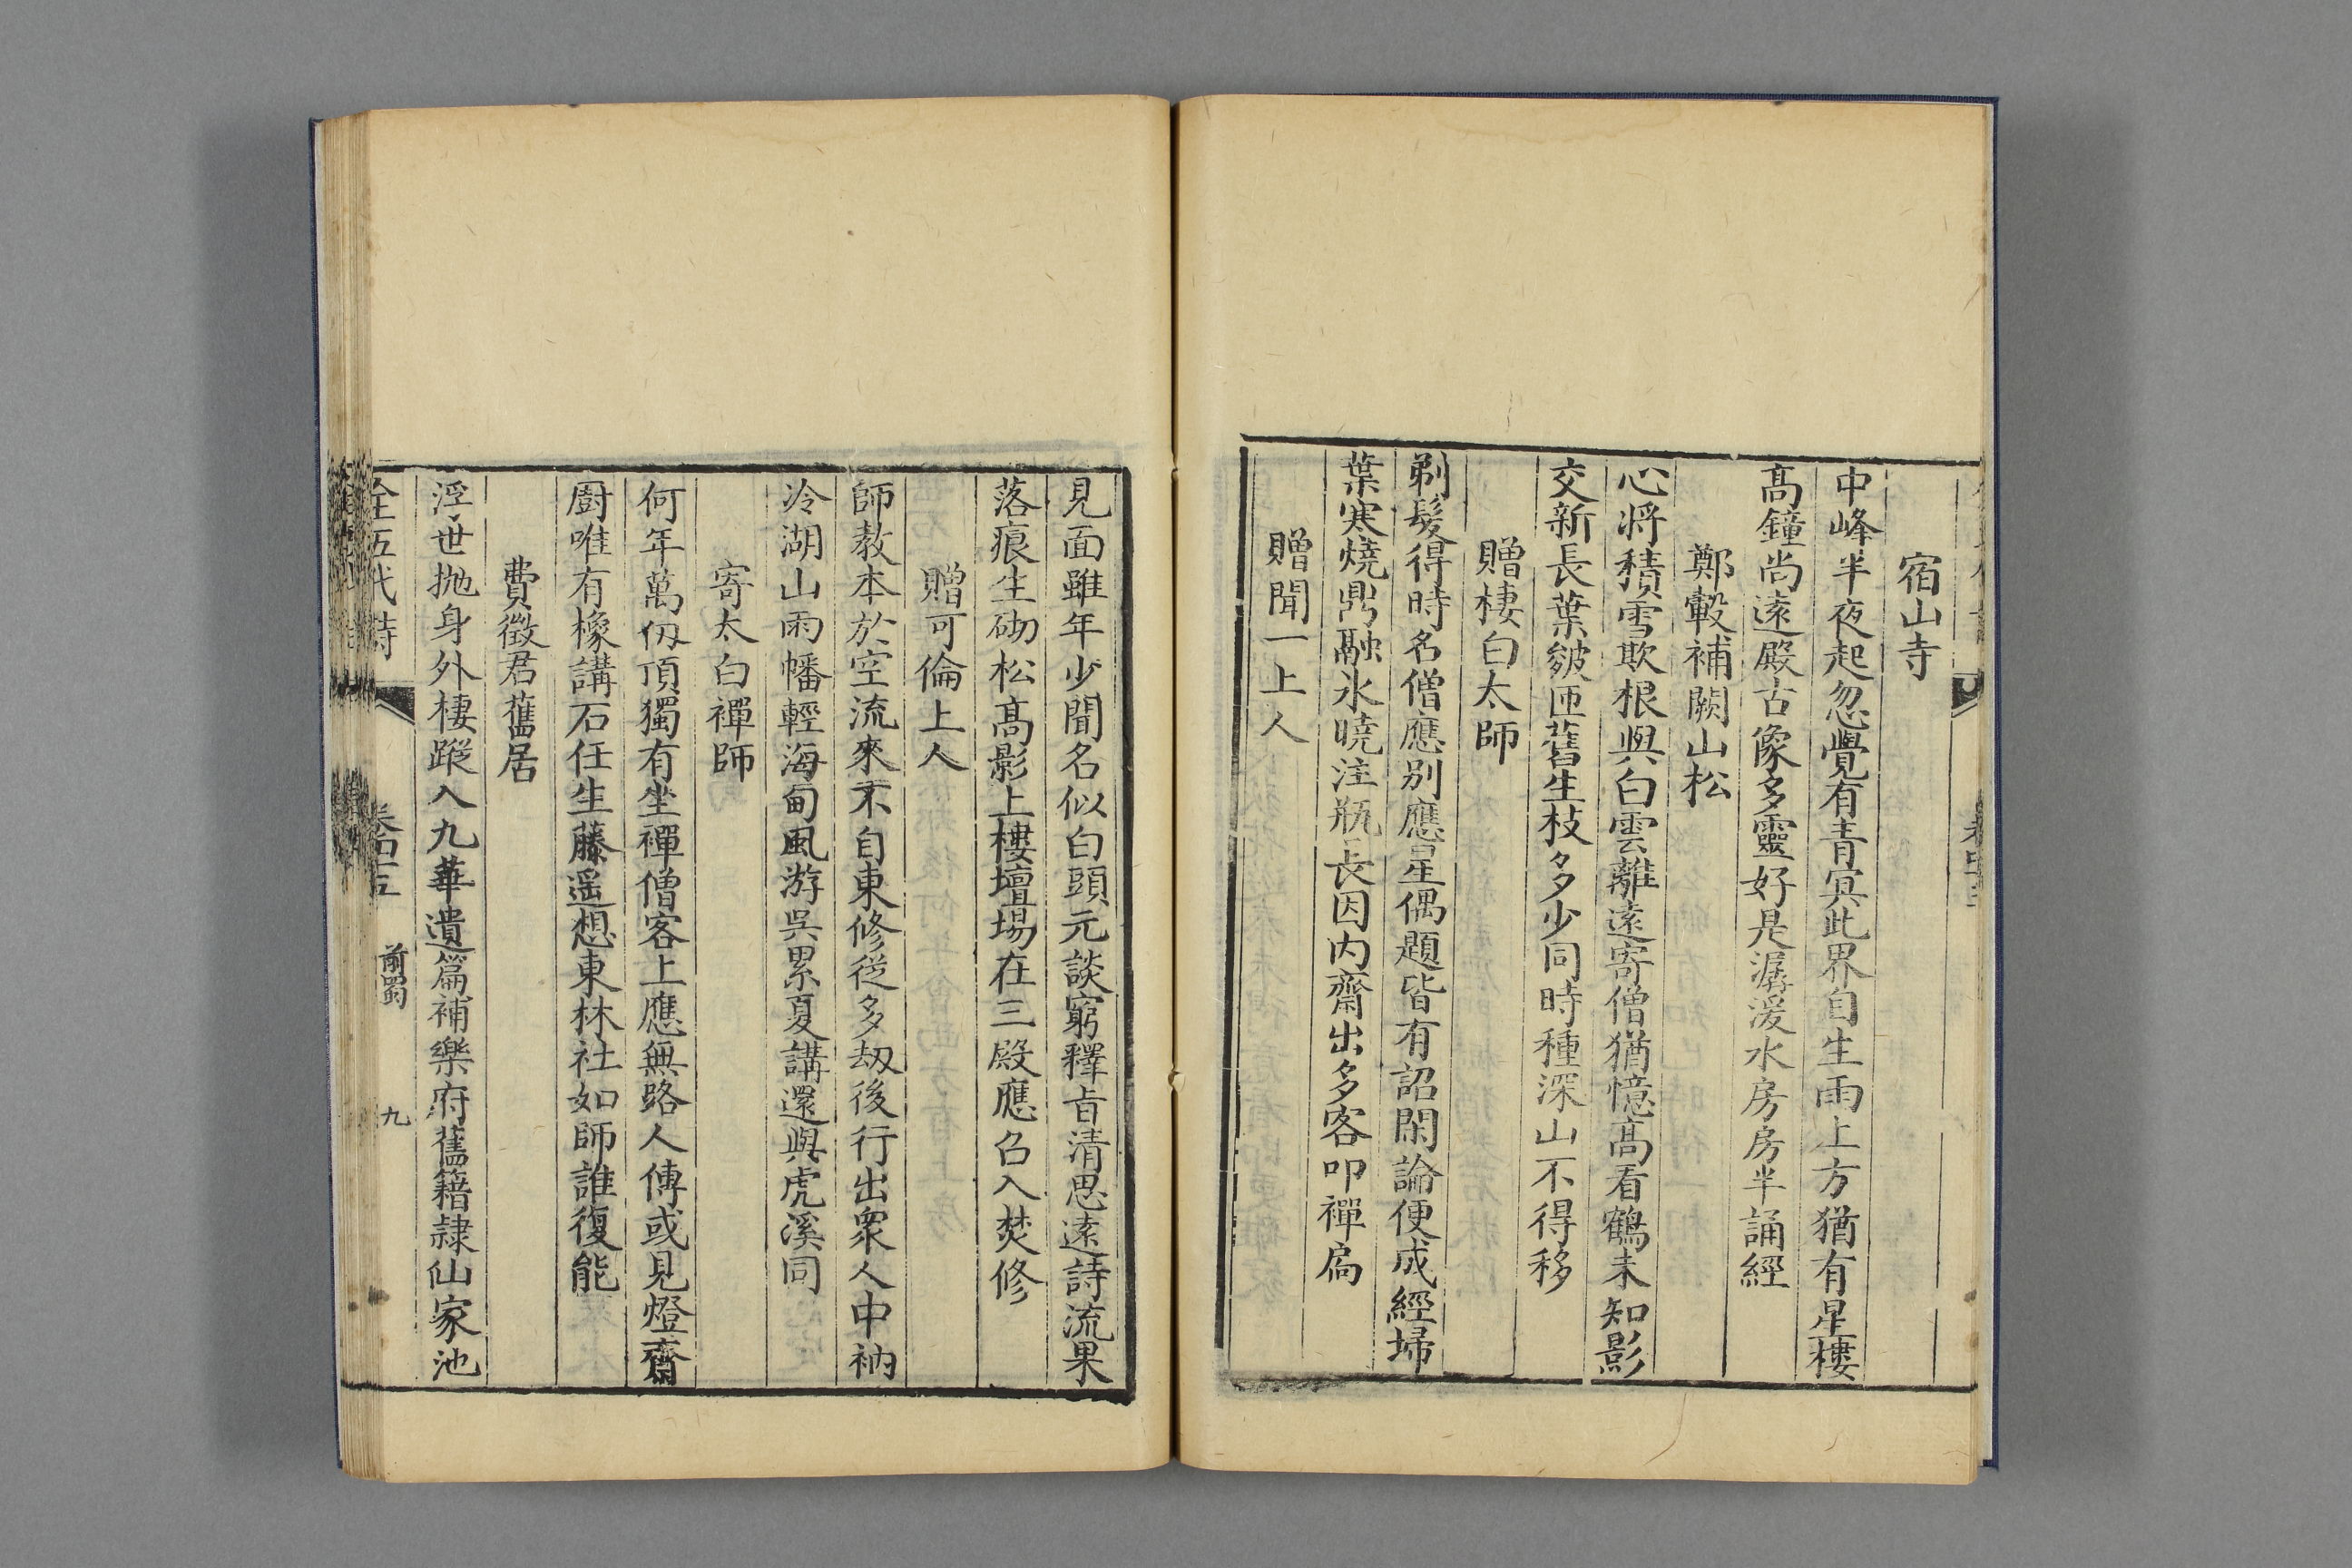 宿山寺
中峰半夜起忽覺有青冥此界自生雨上方猶有星樓
髙鐘尚遠殿古像多靈好是潺湲水房房半誦經
鄭轂補闕山松
心將積雪欺根與白雲離遠寄僧猶憶髙看鶴未知影
交新長葉皴匝舊生枝多少同時種深山不得移
贈棲白太師
剃髮得時名僧應别應星偶題皆有詔閑論便成經掃
葉寒燒鼎融氷曉注瓶長因内齋出多客叩禪扃
贈聞一上人
見面雖年少聞名似白頭元談窮釋旨清思遠詩流果
落痕生砌松髙影上樓壇塲在三殿應召入焚修
贈可倫上人
師教本於空流來不自東修從多劫後行出衆人中衲
冷湖山雨幡輕海甸風游吳累夏講還與虎溪同
寄太白禪師
何年萬仭頂獨有坐禪僧客上應無路人傳或見燈齋
廚唯有橡講石任生藤遥想東林社如師誰復能
費徵君舊居
浮世抛身外棲蹤入九華遺篇補樂府舊籍隷仙家池
全五代詩
前蜀
九